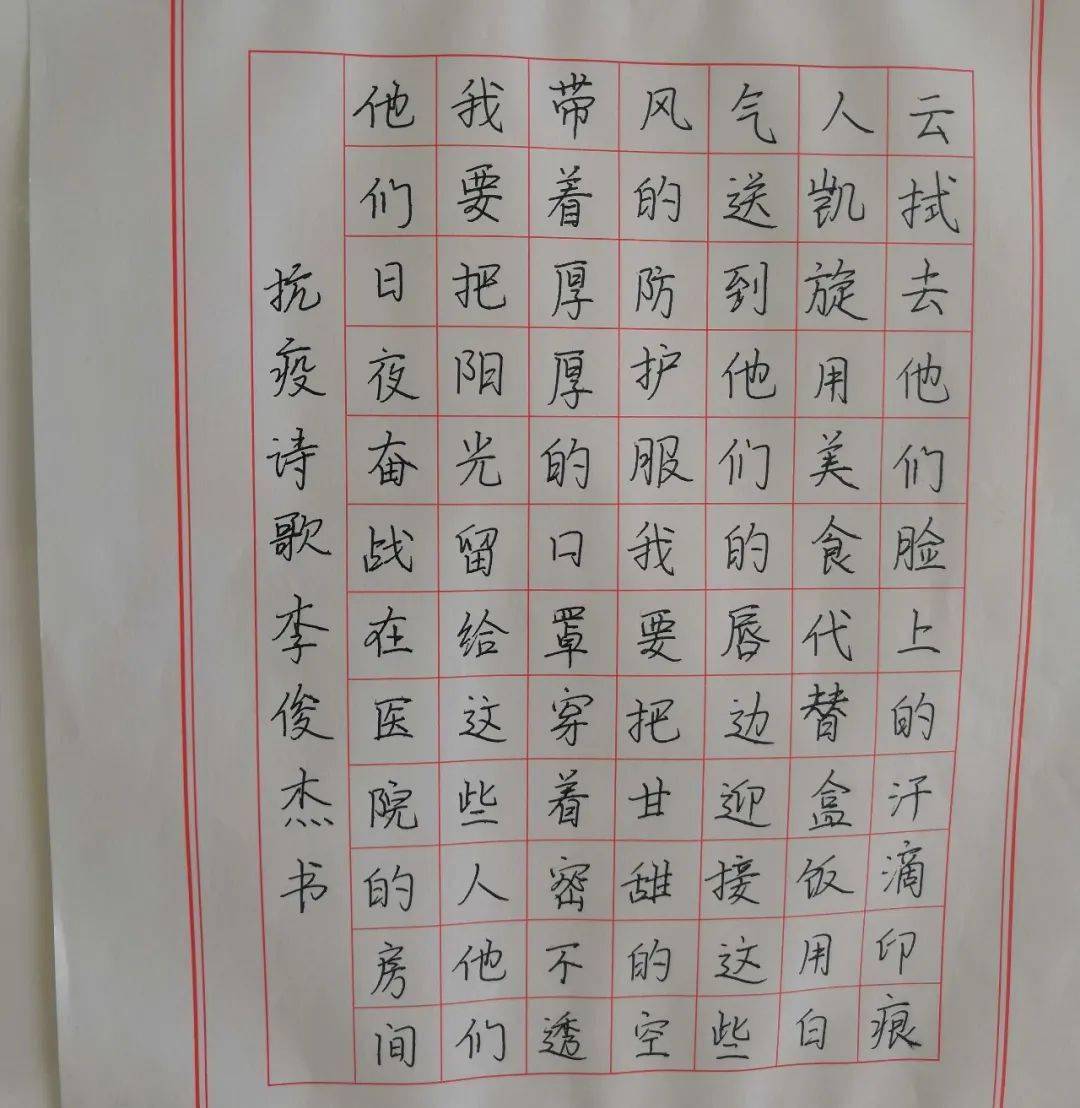 抗疫诗歌李俊杰书
他们日夜奋战在医院的房间
我要把阳光留给这些人他们
带着厚厚的口罩穿着密不透
风的防护服我要把甘甜的空
气送到他们的唇边迎接这些
人凯旋用美食代替盒饭用白
云拭去他们脸上的汗滴印痕